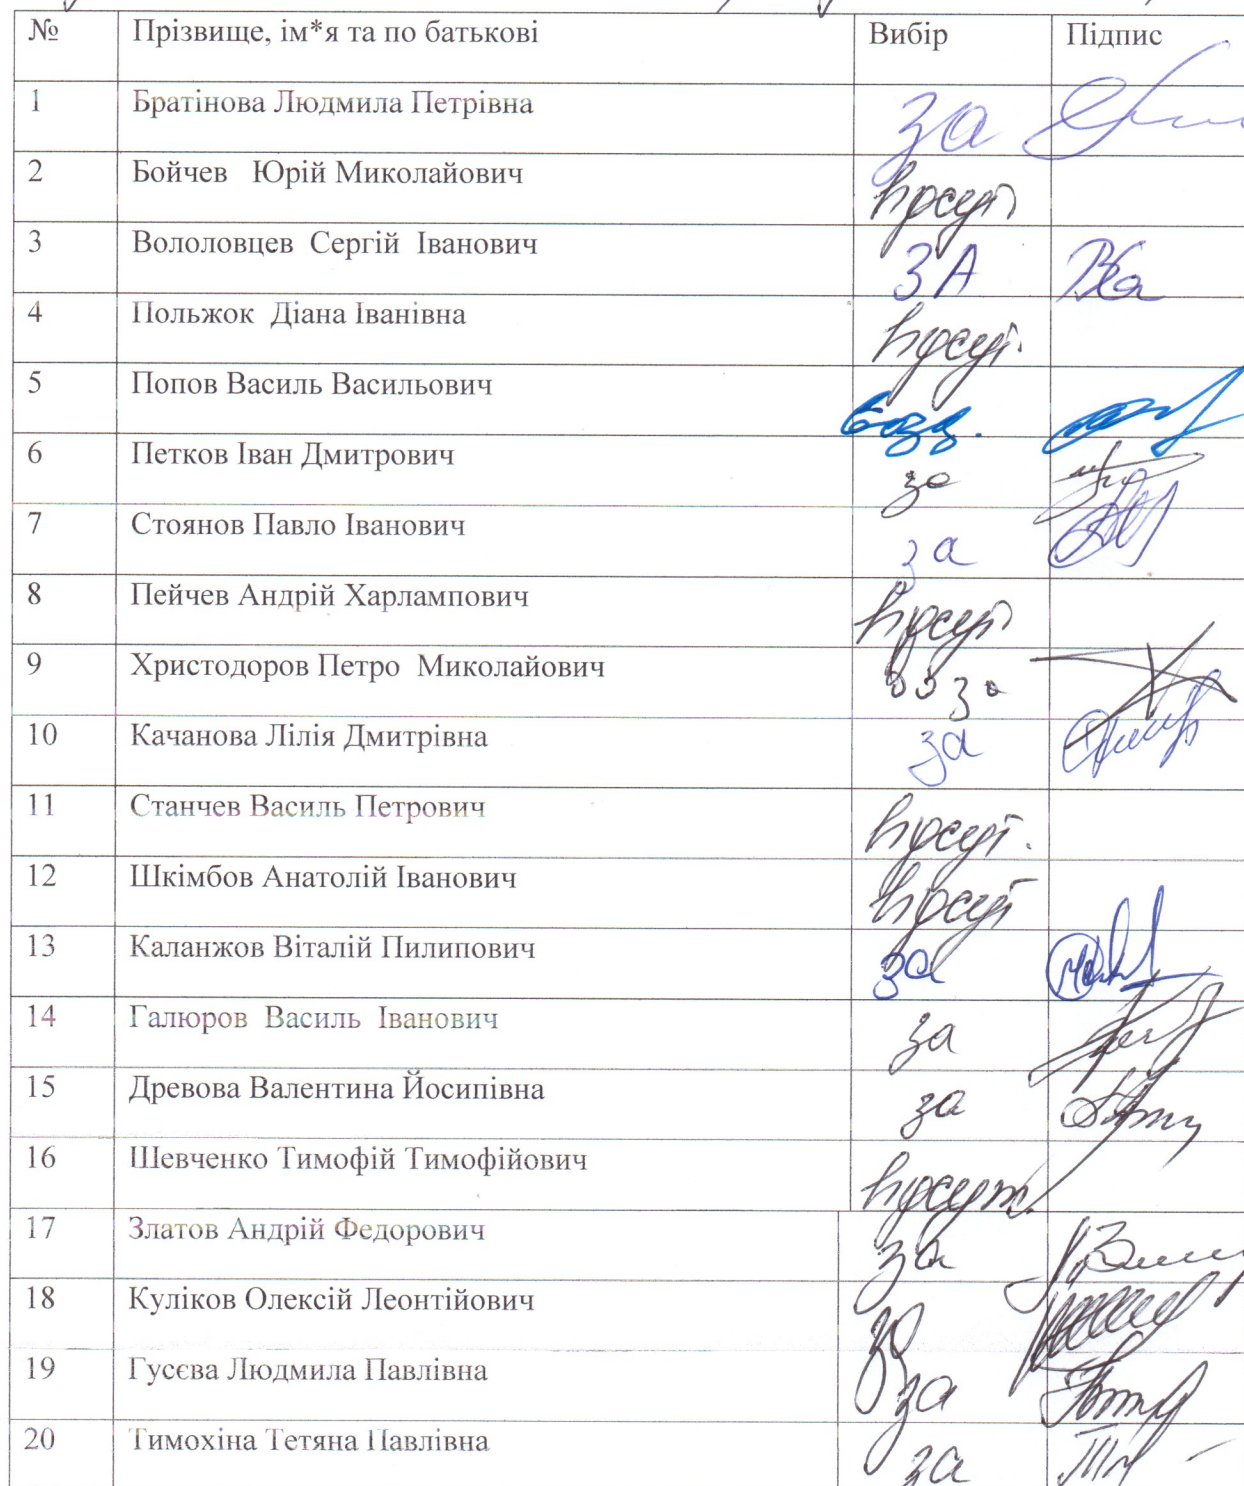 № Прізвище, ім*я та по батькові Вибір Підпис
1 Братінова Людмила Петрівна за
2 Бойчев Юрій Миколайович
3 Вололовцев Сергій Іванович ЗА
4 Польжок Діана Іванівна
5 Попов Василь Васильович
6 Петков Іван Дмитрович за
7 Стоянов Павло Іванович за
8 Пейчев Андрій Харлампович
9 Христодоров Петро Миколайович за
10 Качанова Лілія Дмитрівна за
11 Станчев Василь Петрович
12 Шкімбов Анатолій Іванович
13 Каланжов Віталій Пилипович за
14 Галюров Василь Іванович за
15 Древова Валентина Йосипівна за
16 Шевченко Тимофій Тимофійович
17 Златов Андрій Федорович за
18 Куліков Олексій Леонтійович за
19 Гусєва Людмила Павлівна за
20 Тимохіна Тетяна Павлівна за